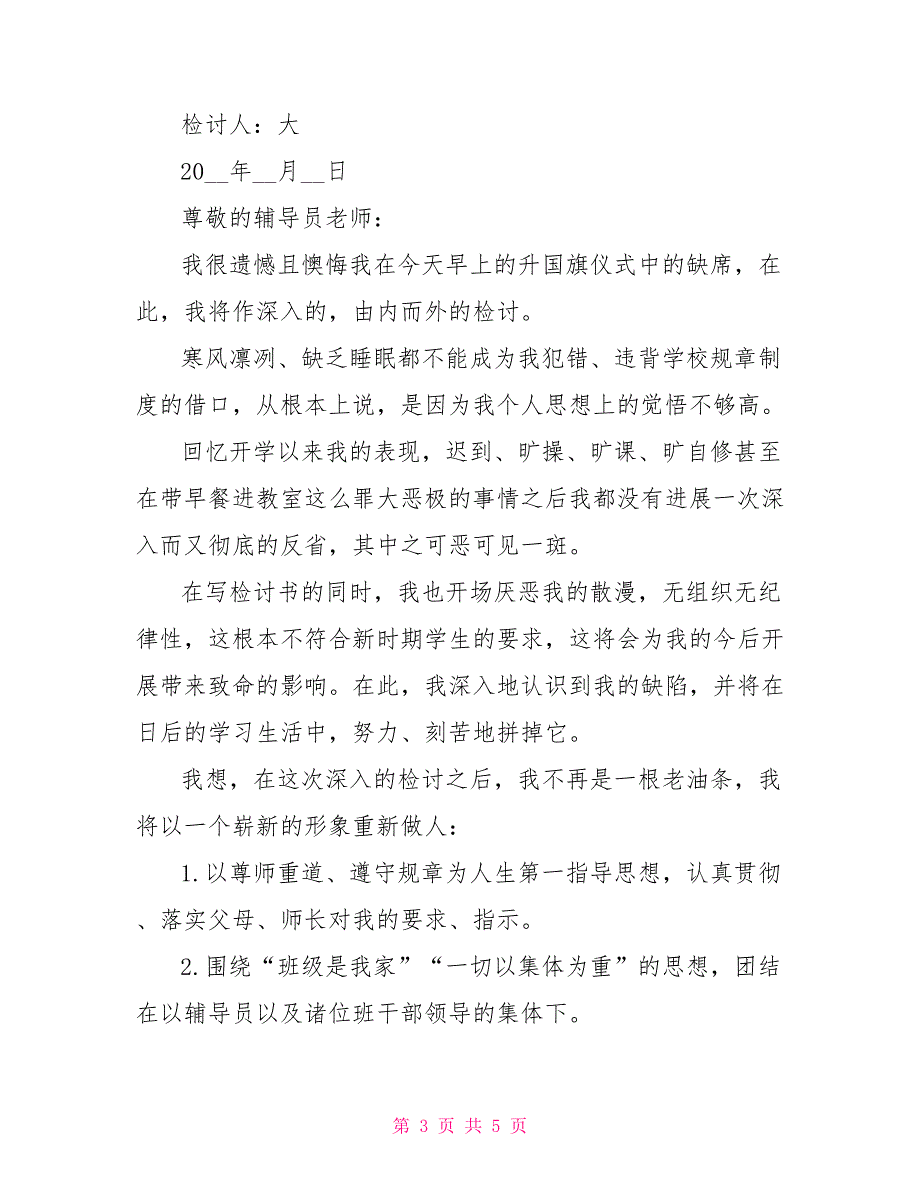 检讨人：大
20__年__月__日
尊敬的辅导员老师：
我很遗憾且懊悔我在今天早上的升国旗仪式中的缺席，在
此，我将作深入的，由内而外的检讨。
寒风凛冽、缺乏睡眠都不能成为我犯错、违背学校规章制
度的借口，从根本上说，是因为我个人思想上的觉悟不够高。
回忆开学以来我的表现，迟到、旷操、旷课、旷自修甚至
在带早餐进教室这么罪大恶极的事情之后我都没有进展一次深
入而又彻底的反省，其中之可恶可见一斑。
在写检讨书的同时，我也开场厌恶我的散漫，无组织无纪
律性，这根本不符合新时期学生的要求，这将会为我的今后开
展带来致命的影响。在此，我深入地认识到我的缺陷，并将在
日后的学习生活中，努力、刻苦地拼掉它。
我想，在这次深入的检讨之后，我不再是一根老油条，我
将以一个崭新的形象重新做人：
1.以尊师重道、遵守规章为人生第一指导思想，认真贯彻
、落实父母、师长对我的要求、指示。
2.围绕“班级是我家”“一切以集体为重”的思想，团结
在以辅导员以及诸位班干部领导的集体下。
第 3 页 共 5 页